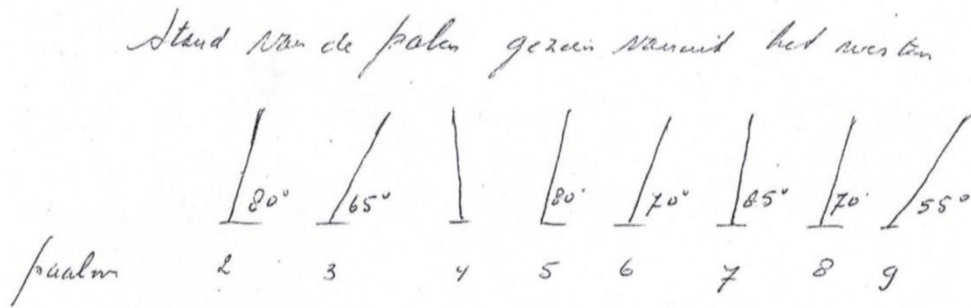 Stand van de palen gezien vanuit het westen
80° 65° 80° 70° 85° 70° 55°
paalnr 2 3 4 5 6 7 8 9